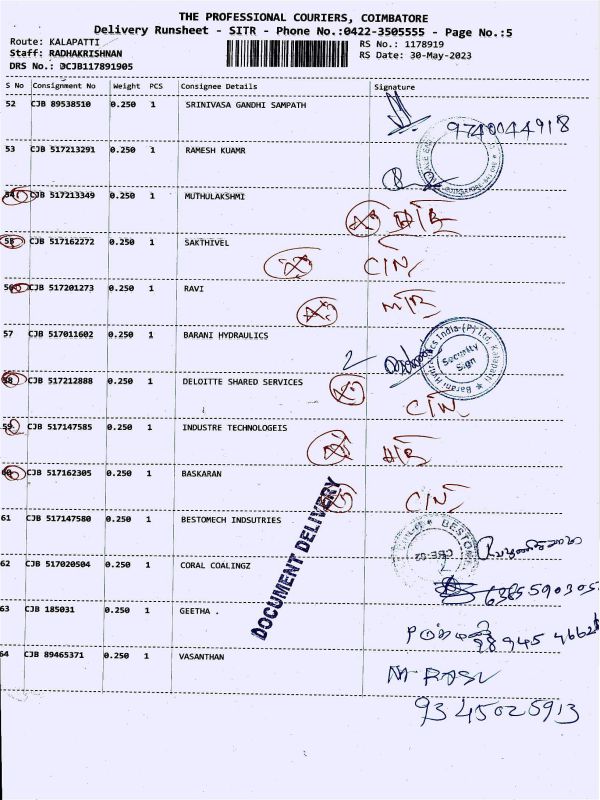 THE PROFESSIONAL COURIERS, COIMBATORE
Delivery Runsheet - SITR - Phone No.:0422-3505555 - Page No.:5
Route: KALAPATTI
RS No.: 1178919
Staff: RADHAKRISHNAN
RS Date: 30-May-2023
DRS No.: DCJB117891905
S No Consignment No Weight PCS Consignee Details Signature
52 CJB 89538510 0.250 1 SRINIVASA GANDHI SAMPATH
9740044918
53 CJB 517213291 0.250 1 RAMESH KUAMR
54 CJB 517213349 0.250 1 MUTHULAKSHMI
55 CJB 517162272 0.250 1 SAKTHIVEL
CIN
56 CJB 517201273 0.250 1 RAVI
57 CJB 517011602 0.250 1 BARANI HYDRAULICS
2
Barani Hydraulics India (P) Ltd, Kalapatti
Security
Sign
58 CJB 517212888 0.250 1 DELOITTE SHARED SERVICES
CIN
59 CJB 517147585 0.250 1 INDUSTRE TECHNOLOGEIS
60 CJB 517162305 0.250 1 BASKARAN
CIN
DOCUMENT DELIVERY
61 CJB 517147580 0.250 1 BESTOMECH INDSUTRIES
62 CJB 517020504 0.250 1 CORAL COALINGZ
63 CJB 185031 0.250 1 GEETHA .
64 CJB 89465371 0.250 1 VASANTHAN
9345025913